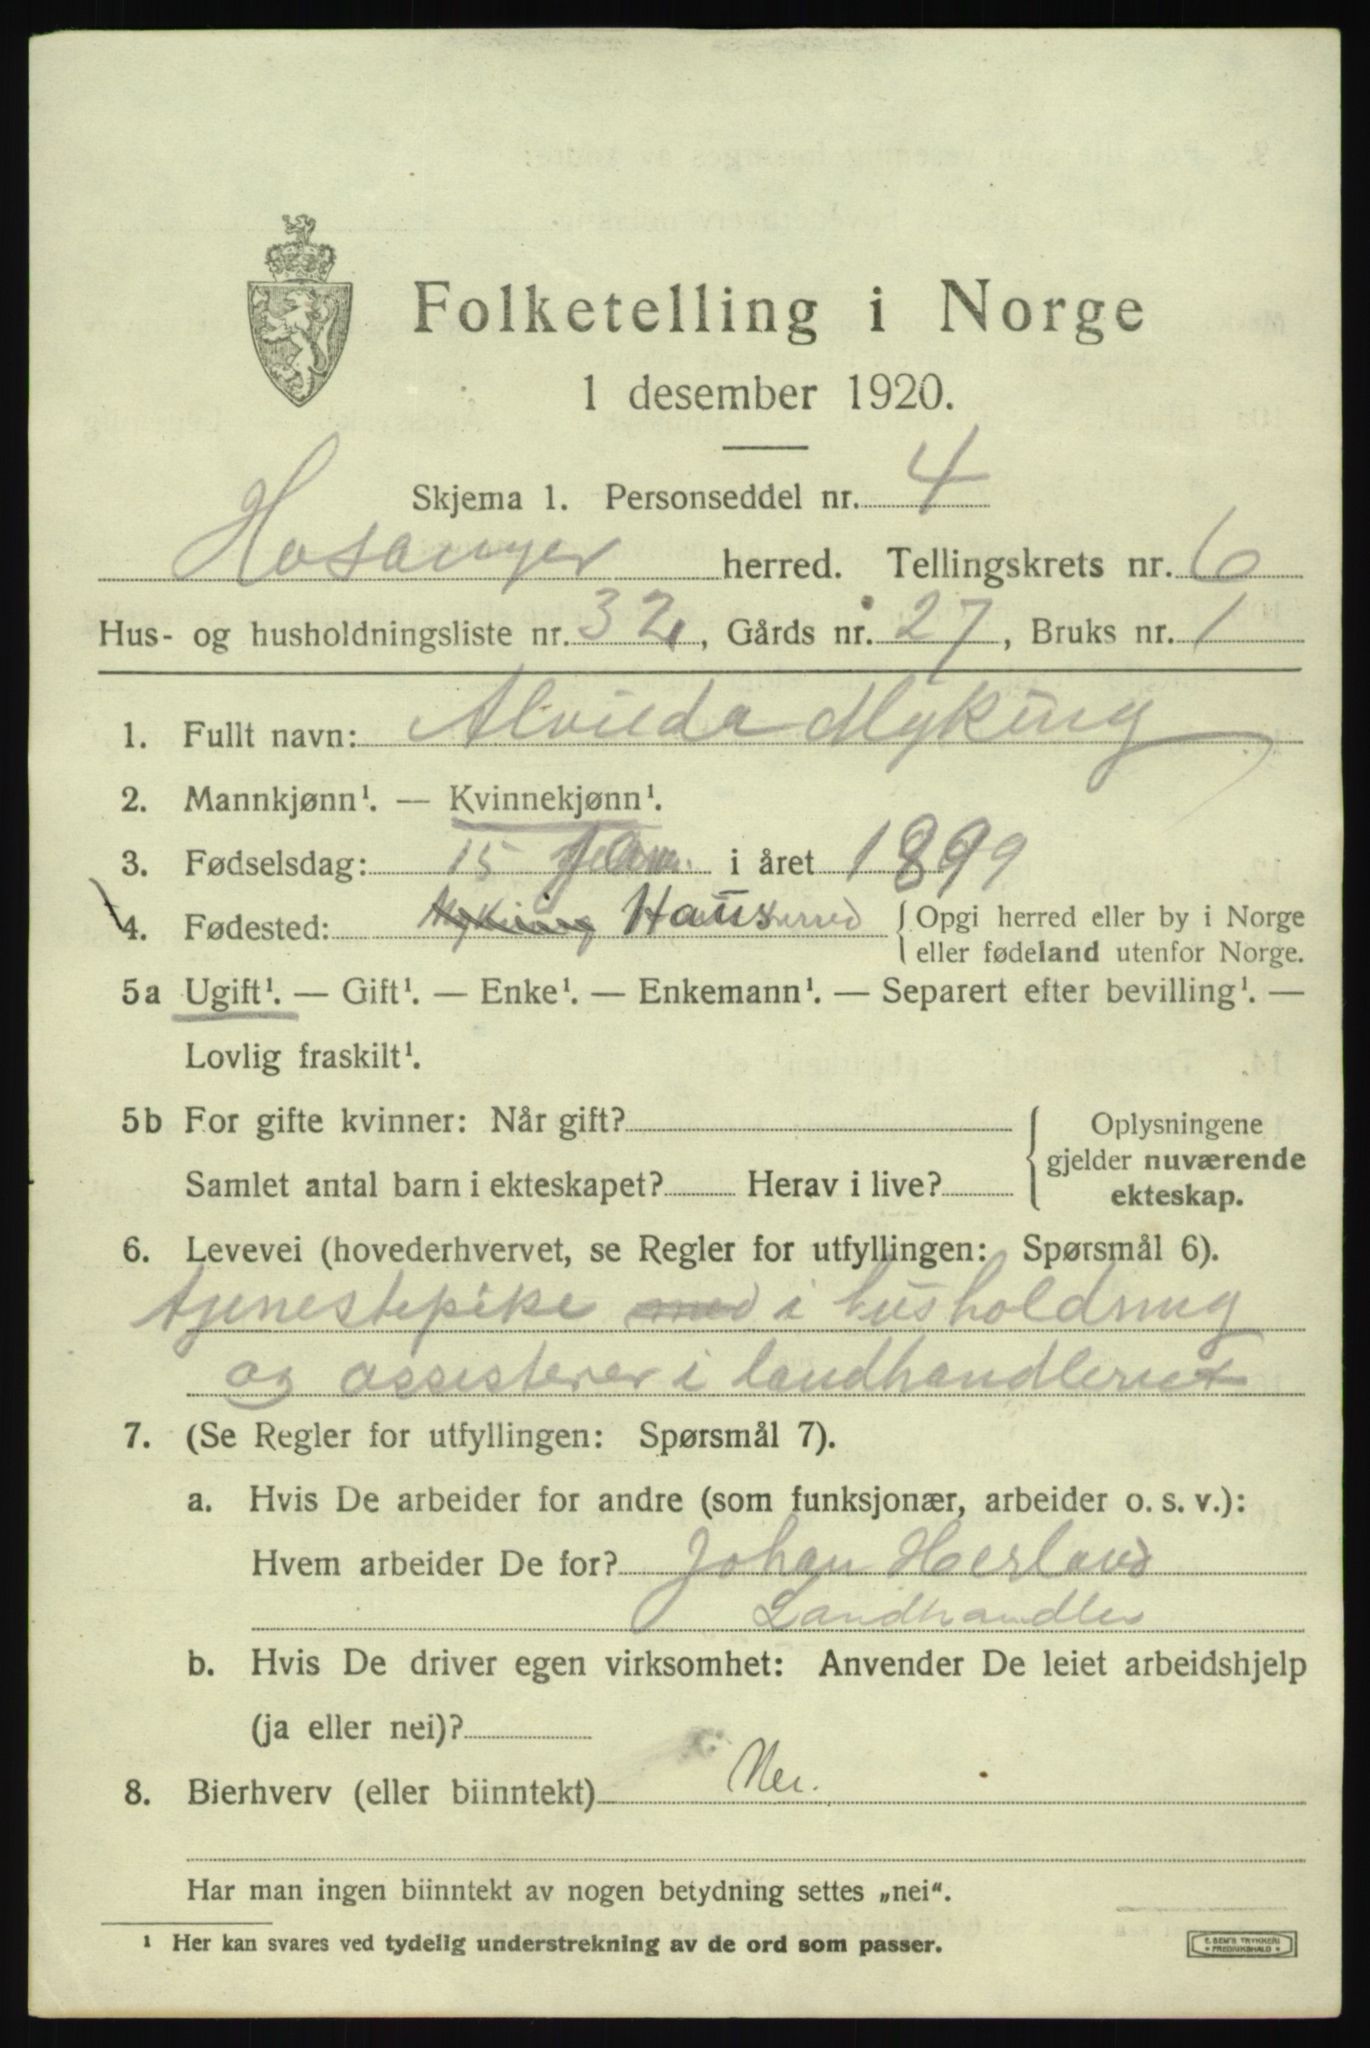 Folketelling i Norge
1 desember 1920.
Skjema 1. Personseddel nr. 4
Hosanger herred. Tellingskrets nr. 6
Hus- og husholdningsliste nr. 32, Gårds nr. 27, Bruks nr. 1
1. Fullt navn: Alvilda Myking
2. Mannkjønn¹. — Kvinnekjønn¹.
3. Fødselsdag: 15 Jan. i året 1899
4. Fødested: Myking Haus herred { Opgi herred eller by i Norge
eller fødeland utenfor Norge.
5a Ugift¹. — Gift¹. — Enke¹. — Enkemann¹. — Separert efter bevilling¹. —
Lovlig fraskilt¹.
5b For gifte kvinner: Når gift? { Oplysningene
gjelder nuværende
Samlet antal barn i ekteskapet? Herav i live?
ekteskap.
6. Levevei (hovederhvervet, se Regler for utfyllingen: Spørsmål 6).
tjenestepike med i husholdning
og assisterer i landhandleriet
7. (Se Regler for utfyllingen: Spørsmål 7).
a. Hvis De arbeider for andre (som funksjonær, arbeider o. s. v.):
Hvem arbeider De for? Johan Herland
Landhandler
b. Hvis De driver egen virksomhet: Anvender De leiet arbeidshjelp
(ja eller nei)?
8. Bierhverv (eller biinntekt) Nei.
Har man ingen biinntekt av nogen betydning settes „nei".
¹ Her kan svares ved tydelig understrekning av de ord som passer.
E. SEM'S TRYKKERI
FREDRIKSHALD